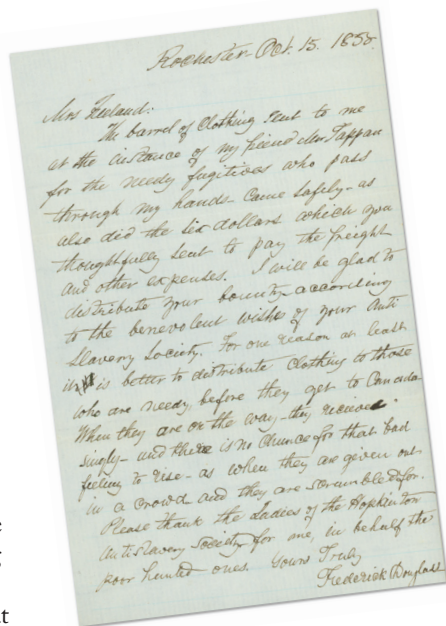 Rochester Oct. 15. 1858.
Mrs
The barrel of Clothing sent to me
at the instance of my friend Mrs Tappan
for the needy fugitives who pass
through my hands - Came Safely - as
also did the six dollars which you
thoughtfully sent to pay the freight
and other expenses. I will be glad to
distribute your bounty according
to the benevolent wishes of your Anti
Slavery Society. For one reason at least
it is better to distribute Clothing to those
who are needy before they get to Canada
When they are on the way - they receive
singly - and there is no chance for that bad
feeling to rise - as when they are given out
in a Crowd and they are scrambled for.
Please thank the Ladies of the Hopkinton
Anti Slavery Society for me, in behalf the
poor hunted ones. Yours Truly
Frederick Douglass